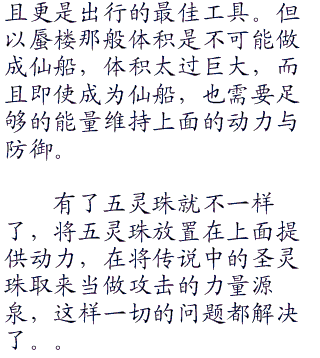 且更是出行的最佳工具。但
以蜃楼那般体积是不可能做
成仙船，体积太过巨大，而
且即使成为仙船，也需要足
够的能量维持上面的动力与
防御。
有了五灵珠就不一样
了，将五灵珠放置在上面提
供动力，在将传说中的圣灵
珠取来当做攻击的力量源
泉，这样一切的问题都解决
了。。